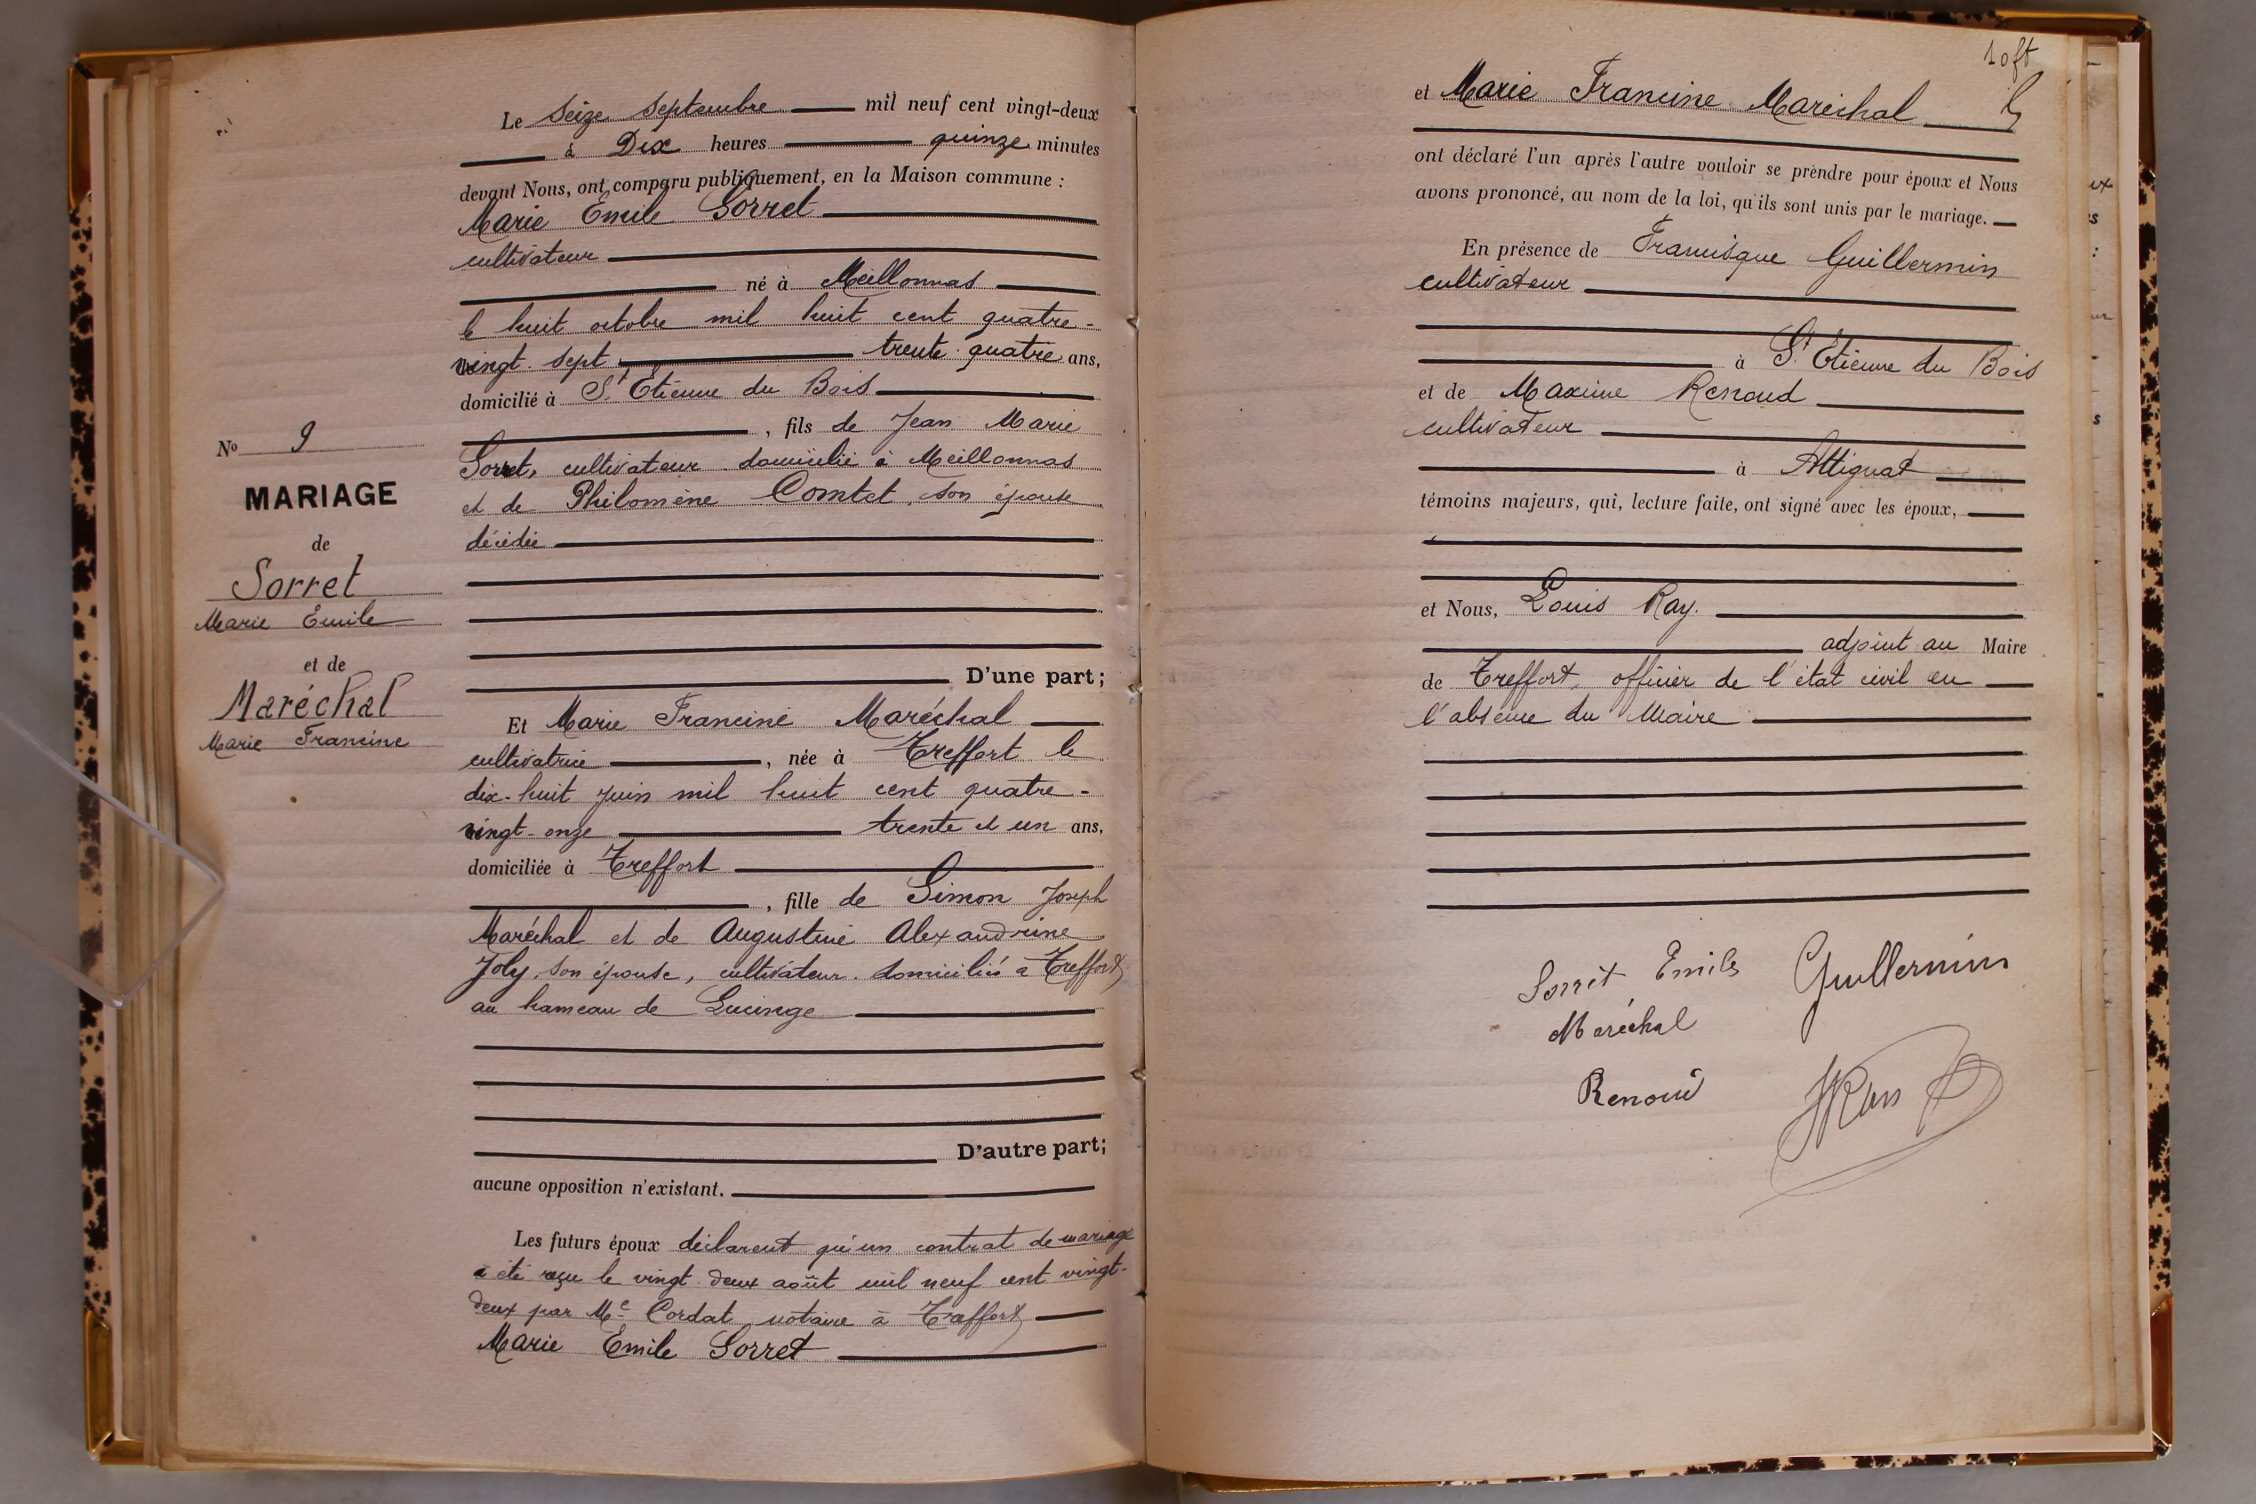 N° 9
MARIAGE
de
Sorret
Marie Emile
et de
Maréchal
Marie Francine
Le Seize Septembre mil neuf cent vingt-deux
à Dix heures quinze minutes
devant Nous, ont comparu publiquement, en la Maison commune :
Marie Emile Sorret
cultivateur
né à Meillonnas
le huit octobre mil huit cent quatre-
vingt-sept, trente-quatre ans,
domicilié à St Etienne du Bois
, fils de Jean Marie
Sorret, cultivateur domicilié à Meillonnas
et de Philomène Comtet, son épouse
décédée
D'une part;
Et Marie Francine Maréchal
cultivatrice, née à Treffort le
dix-huit juin mil huit cent quatre-
vingt-onze trente et un ans,
domiciliée à Treffort
, fille de Simon Joseph
Maréchal et de Augustine Alexandrine
Joly, son épouse, cultivateur domiciliés à Treffort,
au hameau de Lucinge
D'autre part;
aucune opposition n'existant.
Les futurs époux déclarent qu'un contrat de mariage
a été reçu le vingt deux août mil neuf cent vingt-
deux par Me Cordat notaire à Treffort
Marie Emile Sorret
et Marie Francine Maréchal
ont déclaré l'un après l'autre vouloir se prendre pour époux et Nous
avons prononcé, au nom de la loi, qu'ils sont unis par le mariage.
En présence de Francisque Guillermin
cultivateur
à St Etienne du Bois
et de Maxime Renoud
cultivateur
à Attignat
témoins majeurs, qui, lecture faite, ont signé avec les époux,
et Nous, Louis Ray.
adjoint au Maire
de Treffort, officier de l'état civil en
l'absence du Maire
Sorret Emile Guillermin
Maréchal
Renoud